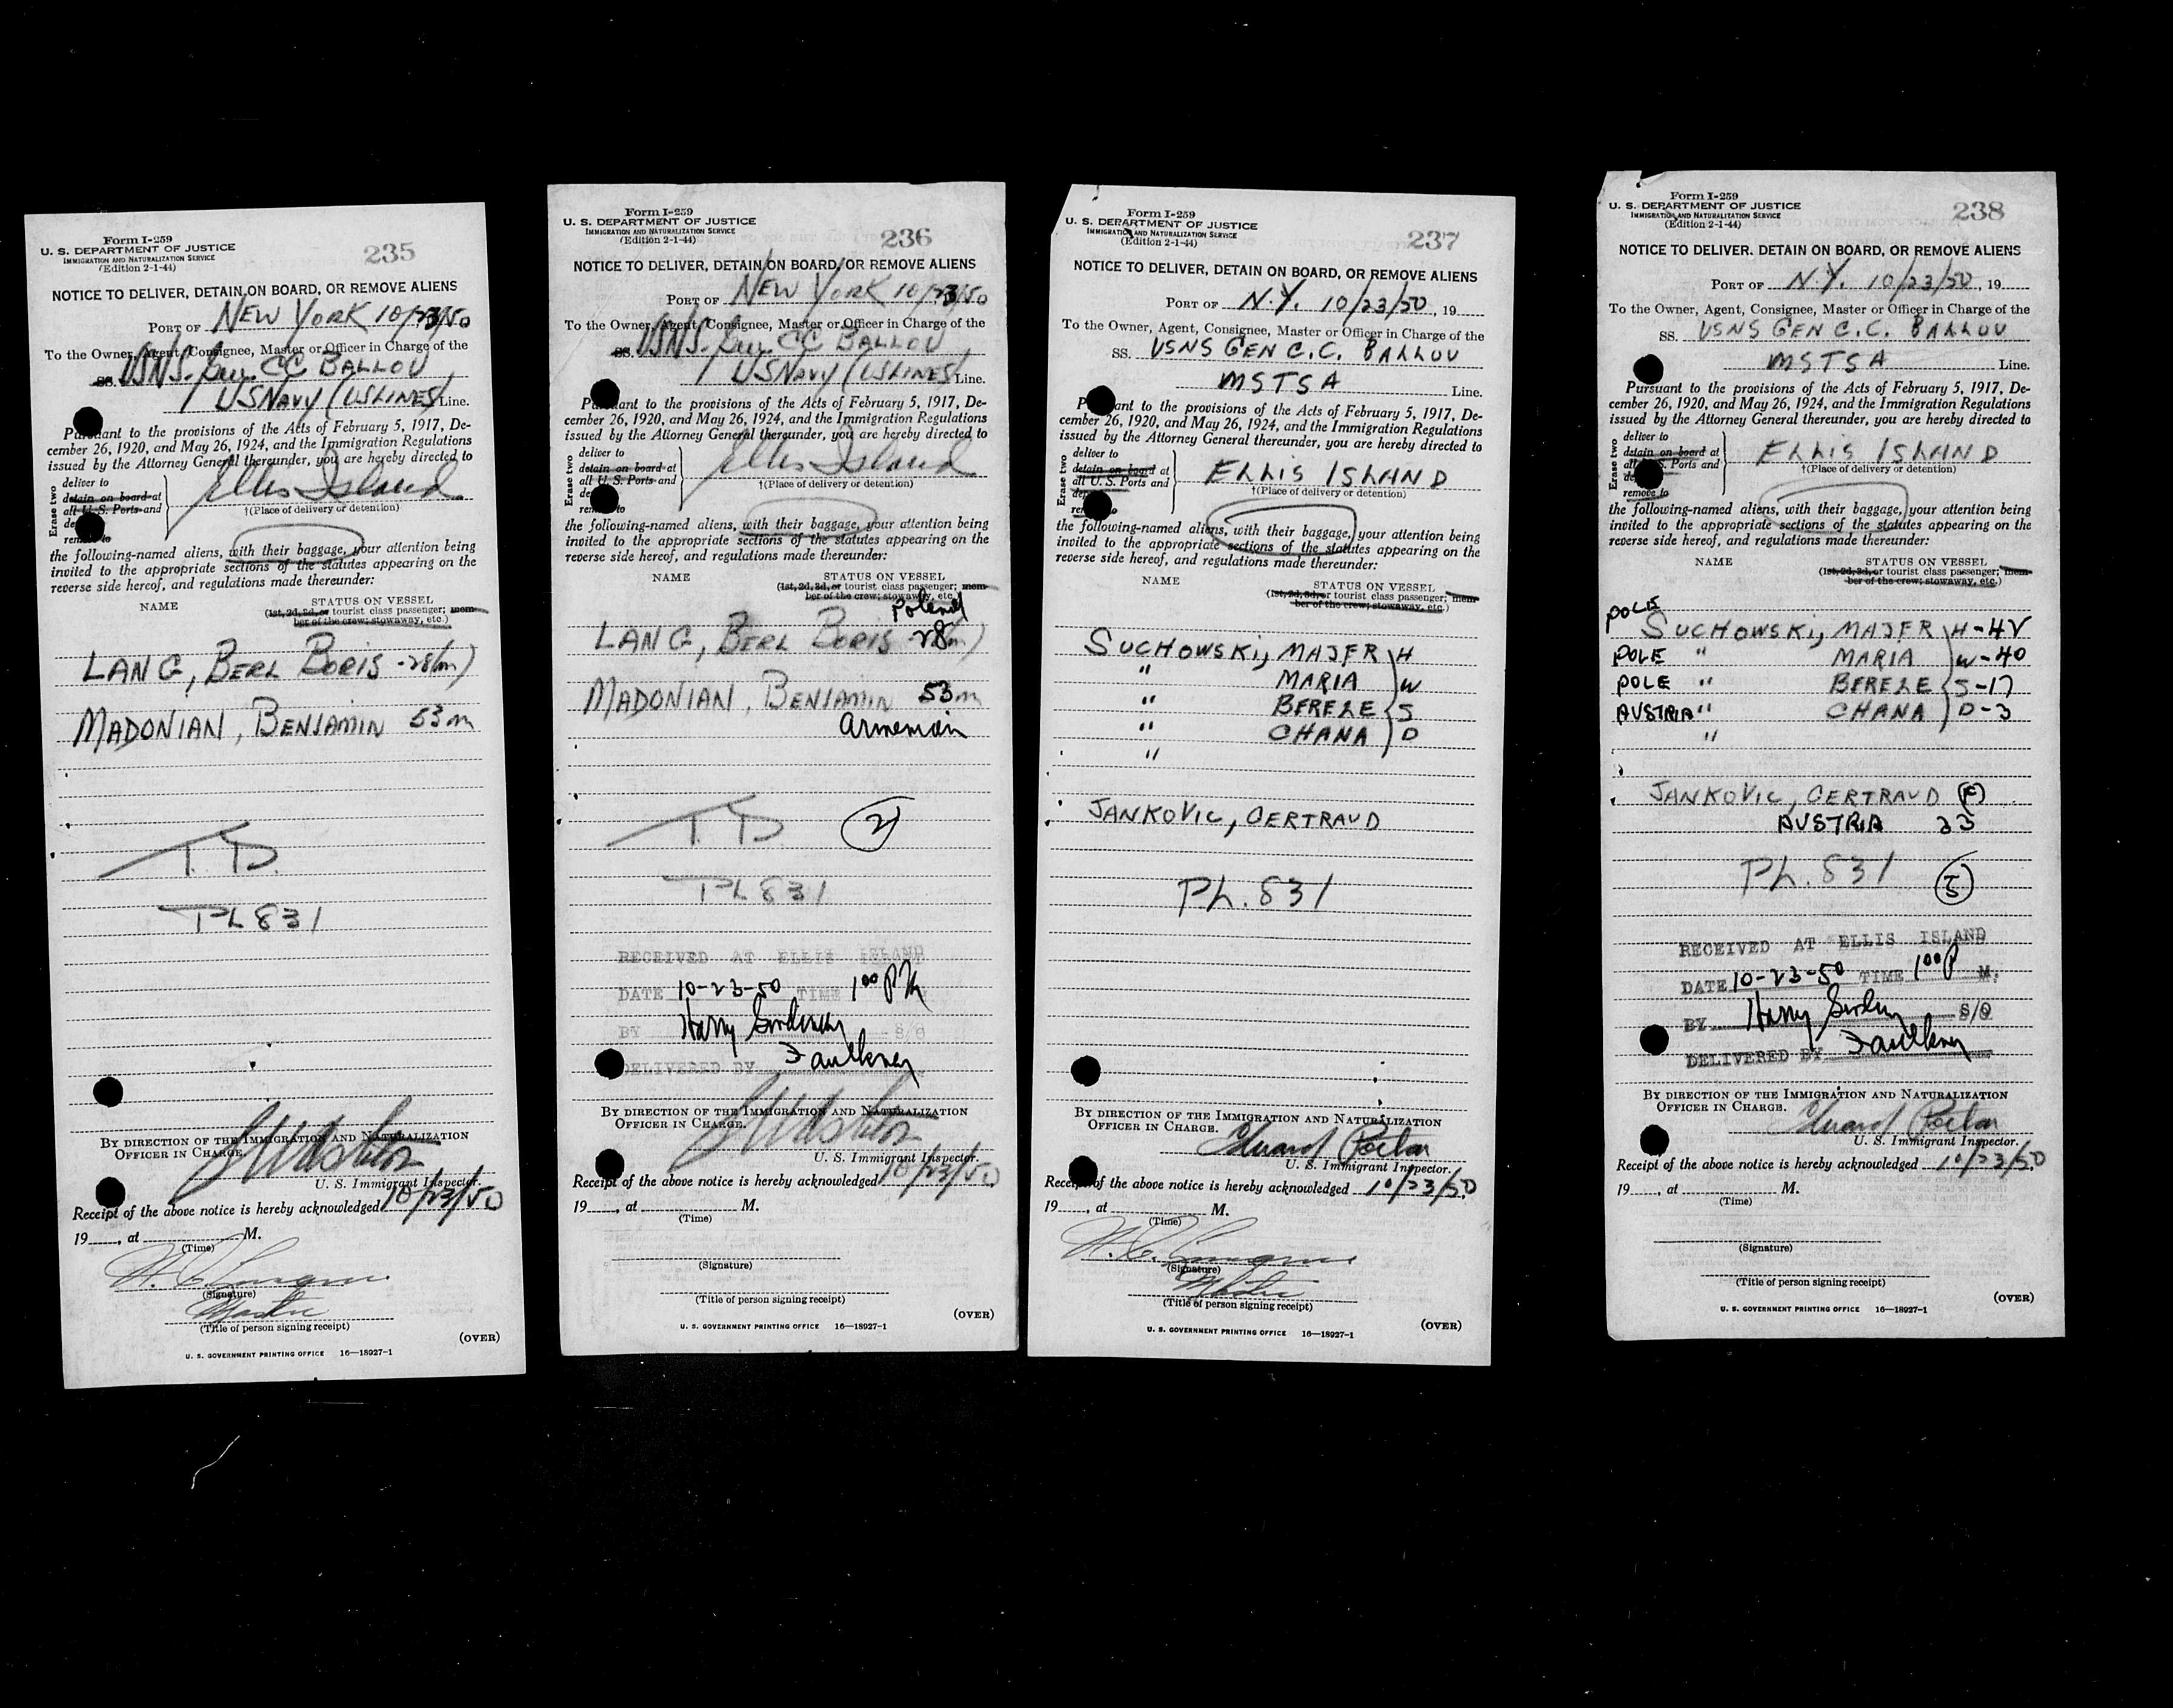 Form I-259
U. S. DEPARTMENT OF JUSTICE
IMMIGRATION AND NATURALIZATION SERVICE
(Edition 2-1-44)
235
NOTICE TO DELIVER, DETAIN ON BOARD, OR REMOVE ALIENS
PORT OF NEW YORK 10/23/50
To the Owner, Agent, Consignee, Master or Officer in Charge of the
SS. USNS. Gen. CC BALLOU
US NAVY (US LINES) Line.
Pursuant to the provisions of the Acts of February 5, 1917, De-
cember 26, 1920, and May 26, 1924, and the Immigration Regulations
issued by the Attorney General thereunder, you are hereby directed to
Erase two
deliver to
detain on board at
all U. S. Ports and
remove to
Ellis Island
†(Place of delivery or detention)
the following-named aliens, with their baggage, your attention being
invited to the appropriate sections of the statutes appearing on the
reverse side hereof, and regulations made thereunder:
NAME
STATUS ON VESSEL
(1st, 2d, 3d, or tourist class passenger; mem-
ber of the crew; stowaway, etc.)
LANG, BERL BORIS - 28(m)
MADONIAN, BENJAMIN 53m
T. D.
PL 831
BY DIRECTION OF THE IMMIGRATION AND NATURALIZATION
OFFICER IN CHARGE.
U. S. Immigrant Inspector.
Receipt of the above notice is hereby acknowledged 10/23/50
19____, at ____________ M.
(Time)
(Signature)
Master
(Title of person signing receipt)
(OVER)
U. S. GOVERNMENT PRINTING OFFICE 16—18927-1
Form I-259
U. S. DEPARTMENT OF JUSTICE
IMMIGRATION AND NATURALIZATION SERVICE
(Edition 2-1-44)
236
NOTICE TO DELIVER, DETAIN ON BOARD, OR REMOVE ALIENS
PORT OF NEW YORK 10/23/50
To the Owner, Agent, Consignee, Master or Officer in Charge of the
SS. USNS. Gen. CC BALLOU
US NAVY (US LINES) Line.
Pursuant to the provisions of the Acts of February 5, 1917, De-
cember 26, 1920, and May 26, 1924, and the Immigration Regulations
issued by the Attorney General thereunder, you are hereby directed to
Erase two
deliver to
detain on board at
all U. S. Ports and
remove to
Ellis Island
†(Place of delivery or detention)
the following-named aliens, with their baggage, your attention being
invited to the appropriate sections of the statutes appearing on the
reverse side hereof, and regulations made thereunder:
NAME
STATUS ON VESSEL
(1st, 2d, 3d, or tourist class passenger; mem-
ber of the crew; stowaway, etc.)
Poland
LANG, BERL BORIS - 28(m)
MADONIAN, BENJAMIN 53m
Armenian
T. D. (2)
PL 831
RECEIVED AT ELLIS ISLAND
DATE 10-23-50 TIME 1 00 P M
BY Harry S/O
DELIVERED BY Faulkner
BY DIRECTION OF THE IMMIGRATION AND NATURALIZATION
OFFICER IN CHARGE.
U. S. Immigrant Inspector.
Receipt of the above notice is hereby acknowledged 10/23/50
19____, at ____________ M.
(Time)
(Signature)
(Title of person signing receipt)
(OVER)
U. S. GOVERNMENT PRINTING OFFICE 16—18927-1
Form I-259
U. S. DEPARTMENT OF JUSTICE
IMMIGRATION AND NATURALIZATION SERVICE
(Edition 2-1-44)
237
NOTICE TO DELIVER, DETAIN ON BOARD, OR REMOVE ALIENS
PORT OF N.Y. 10/23/50, 19____
To the Owner, Agent, Consignee, Master or Officer in Charge of the
SS. USNS GEN C.C. BALLOU
MSTSA Line.
Pursuant to the provisions of the Acts of February 5, 1917, De-
cember 26, 1920, and May 26, 1924, and the Immigration Regulations
issued by the Attorney General thereunder, you are hereby directed to
Erase two
deliver to
detain on board at
all U. S. Ports and
remove to
ELLIS ISLAND
†(Place of delivery or detention)
the following-named aliens, with their baggage, your attention being
invited to the appropriate sections of the statutes appearing on the
reverse side hereof, and regulations made thereunder:
NAME
STATUS ON VESSEL
(1st, 2d, 3d, or tourist class passenger; mem-
ber of the crew; stowaway, etc.)
SUCHOWSKI, MAJER H
" MARIA W
" BERELE S
" CHANA D
"
JANKOVIC, GERTRAUD
P.L. 831
BY DIRECTION OF THE IMMIGRATION AND NATURALIZATION
OFFICER IN CHARGE.
Edward
U. S. Immigrant Inspector.
Receipt of the above notice is hereby acknowledged 10/23/50
19____, at ____________ M.
(Time)
(Signature)
Master
(Title of person signing receipt)
(OVER)
U. S. GOVERNMENT PRINTING OFFICE 16—18927-1
Form I-259
U. S. DEPARTMENT OF JUSTICE
IMMIGRATION AND NATURALIZATION SERVICE
(Edition 2-1-44)
238
NOTICE TO DELIVER, DETAIN ON BOARD, OR REMOVE ALIENS
PORT OF N.Y. 10/23/50, 19____
To the Owner, Agent, Consignee, Master or Officer in Charge of the
SS. USNS GEN C.C. BALLOU
MSTSA Line.
Pursuant to the provisions of the Acts of February 5, 1917, De-
cember 26, 1920, and May 26, 1924, and the Immigration Regulations
issued by the Attorney General thereunder, you are hereby directed to
Erase two
deliver to
detain on board at
all U. S. Ports and
remove to
ELLIS ISLAND
†(Place of delivery or detention)
the following-named aliens, with their baggage, your attention being
invited to the appropriate sections of the statutes appearing on the
reverse side hereof, and regulations made thereunder:
NAME
STATUS ON VESSEL
(1st, 2d, 3d, or tourist class passenger; mem-
ber of the crew; stowaway, etc.)
POLE SUCHOWSKI, MAJER H-42
POLE " MARIA W-40
POLE " BERELE S-17
AUSTRIA " CHANA D-3
"
JANKOVIC, GERTRAUD (F)
AUSTRIA 23
P.L. 831 (5)
RECEIVED AT ELLIS ISLAND
DATE 10-23-50 TIME 1 00 P M.
BY Harry S/O
DELIVERED BY Faulkner
BY DIRECTION OF THE IMMIGRATION AND NATURALIZATION
OFFICER IN CHARGE.
Edward
U. S. Immigrant Inspector.
Receipt of the above notice is hereby acknowledged 10/23/50
19____, at ____________ M.
(Time)
(Signature)
(Title of person signing receipt)
(OVER)
U. S. GOVERNMENT PRINTING OFFICE 16—18927-1